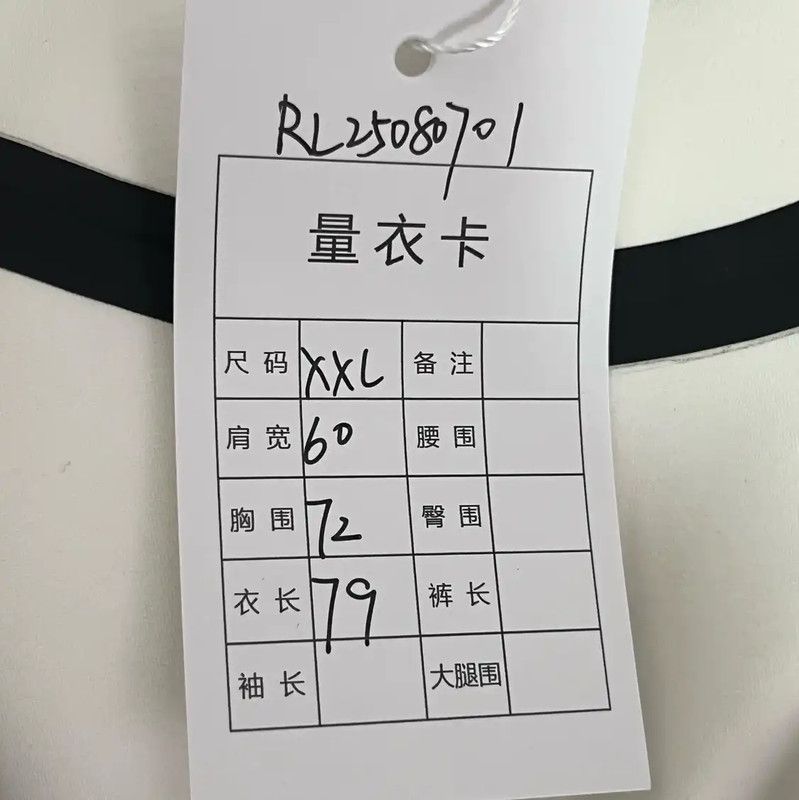 RL25080701
量衣卡
尺码 XXL 备注
肩宽 60 腰围
胸围 72 臀围
衣长 79 裤长
袖长 大腿围